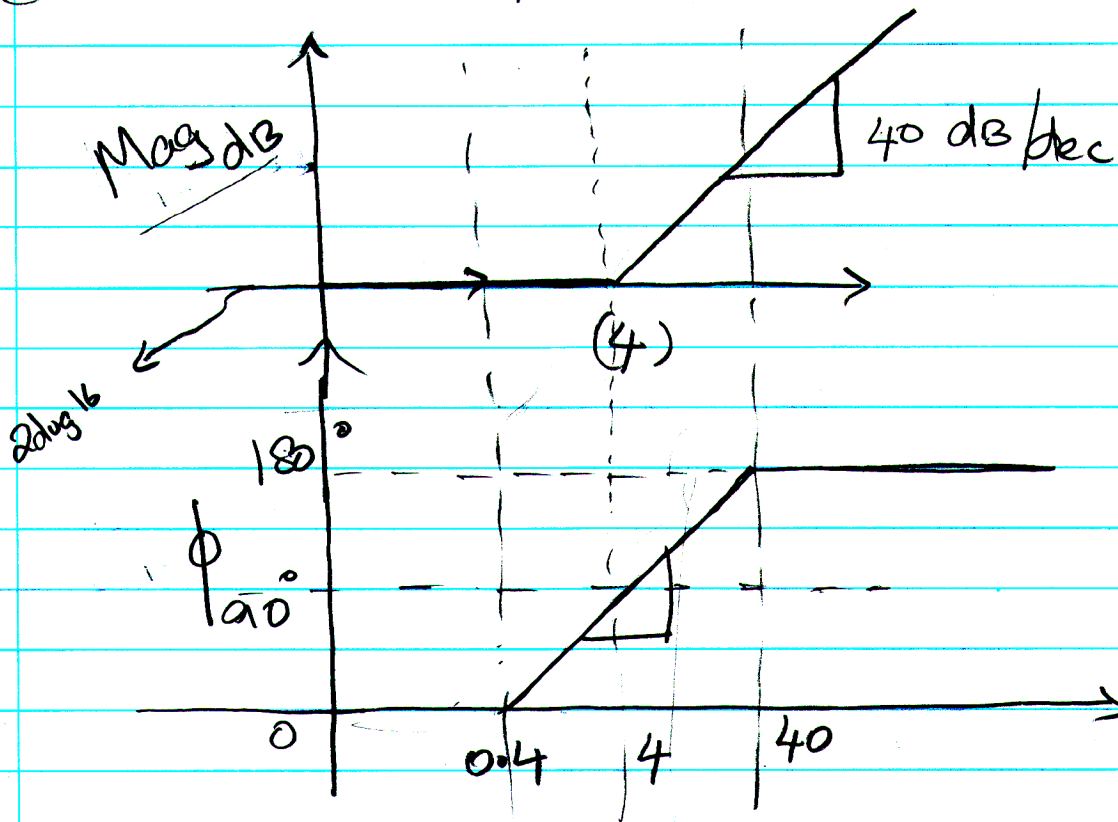 Mag dB
40 dB/dec
(4)
20log 16
180°
ϕ
90°
0
0.4
4
40